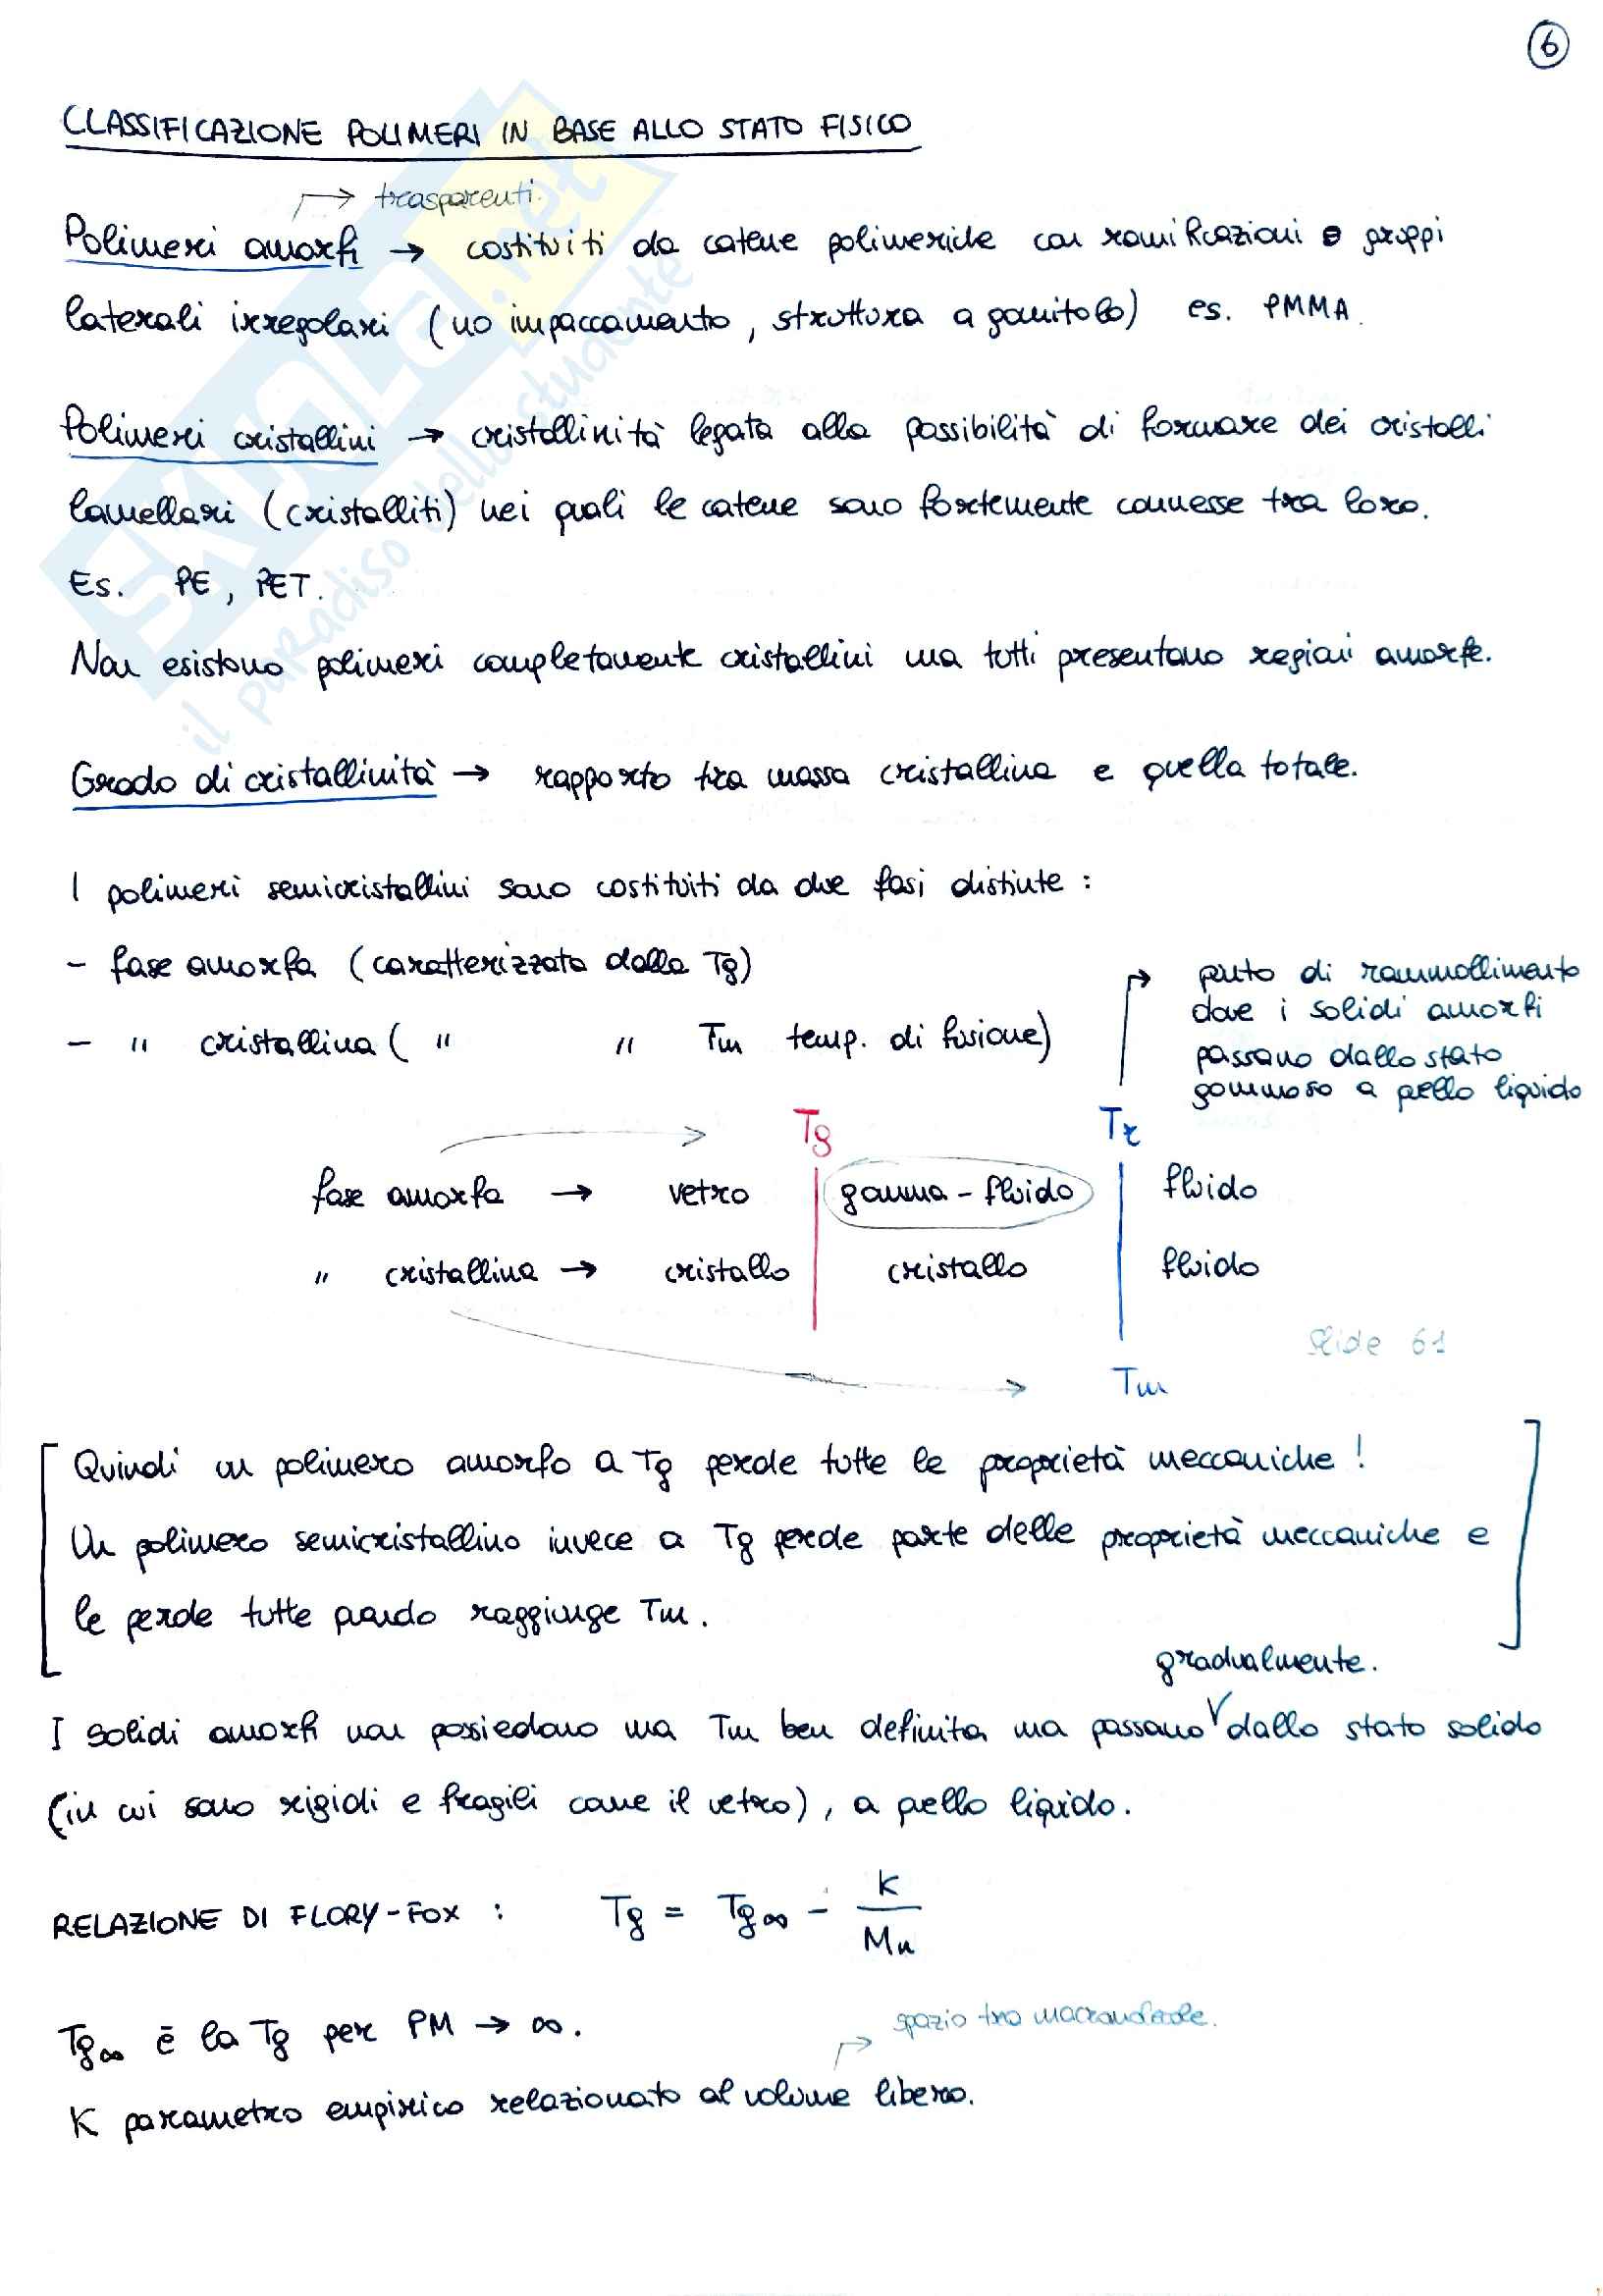 6
CLASSIFICAZIONE POLIMERI IN BASE ALLO STATO FISICO
trasparenti.
Polimeri amorfi → costituiti da catene polimeriche con ramificazioni o gruppi
laterali irregolari (no impaccamento, struttura a gomitolo) es. PMMA.
Polimeri cristallini → cristallinità legata alla possibilità di formare dei cristalli
lamellari (cristalliti) nei quali le catene sono fortemente connesse tra loro.
Es. PE, PET.
Non esistono polimeri completamente cristallini ma tutti presentano regioni amorfe.
Grado di cristallinità → rapporto tra massa cristallina e quella totale.
I polimeri semicristallini sono costituiti da due fasi distinte :
- fase amorfa (caratterizzata dalla Tg)
- " cristallina ( " " Tm temp. di fusione)
punto di rammollimento
dove i solidi amorfi
passano dallo stato
gommoso a quello liquido
Tg Tr
fase amorfa → vetro gomma - fluido fluido
" cristallina → cristallo cristallo fluido
Slide 61
Tm
Quindi un polimero amorfo a Tg perde tutte le proprietà meccaniche !
Un polimero semicristallino invece a Tg perde parte delle proprietà meccaniche e
le perde tutte quando raggiunge Tm.
gradualmente.
I solidi amorfi non possiedono una Tm ben definita ma passano dallo stato solido
(in cui sono rigidi e fragili come il vetro), a quello liquido.
RELAZIONE DI FLORY-FOX : Tg = Tg∞ - K / Mn
spazio tra macromolecole.
Tg∞ è la Tg per PM → ∞.
K parametro empirico relazionato al volume libero.
SKUOLA.net
il paradiso dello studente